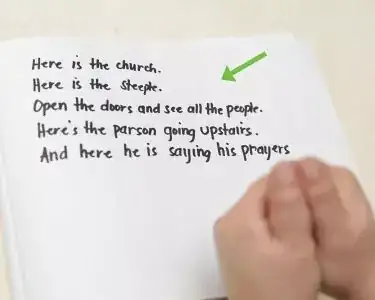 Here is the church.
Here is the steeple.
Open the doors and see all the people.
Here's the parson going upstairs.
And here he is saying his prayers